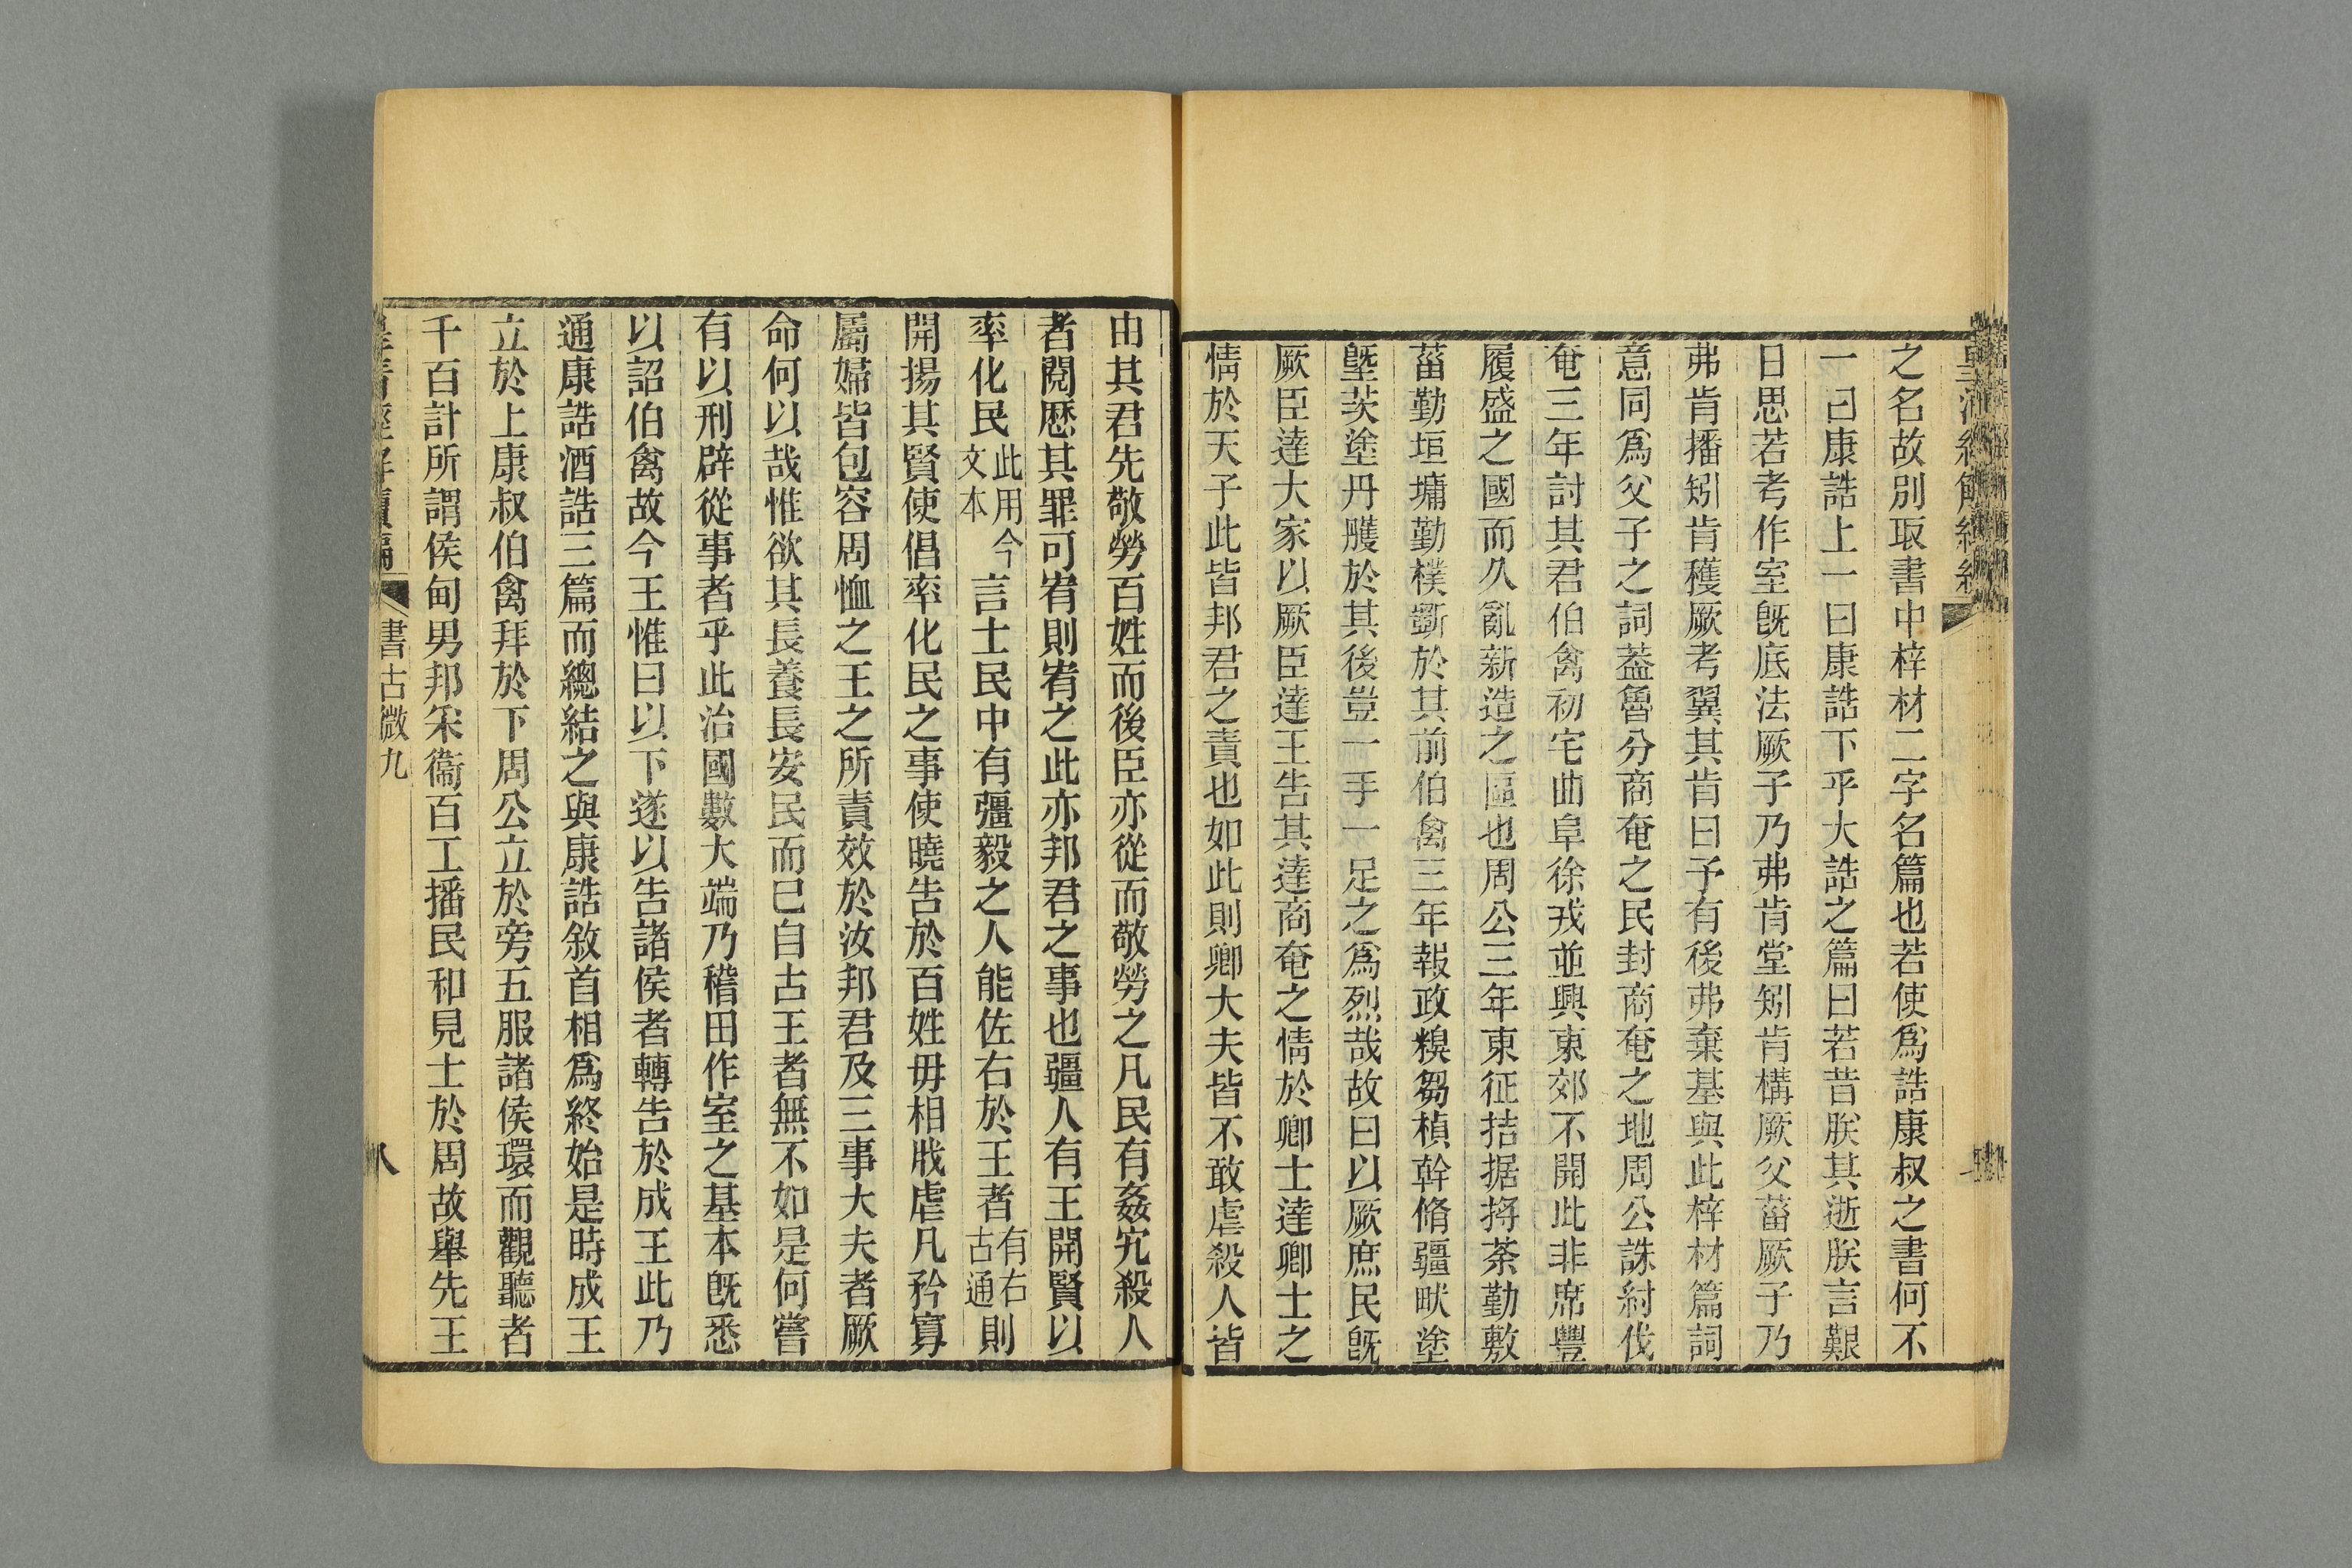 之名故別取書中梓材二字名篇也若使爲誥康叔之書何不
一曰康誥上一曰康誥下乎大誥之篇曰若昔朕其逝朕言艱
日思若考作室旣底法厥子乃弗肯堂矧肯構厥父菑厥子乃
弗肯播矧肯穫厥考翼其肯曰予有後弗棄基與此梓材篇詞
意同爲父子之詞葢魯分商奄之民封商奄之地周公誅紂伐
奄三年討其君伯禽初宅曲阜徐戎並興東郊不開此非席豐
履盛之國而久亂新造之區也周公三年東征拮据捋荼勤敷
菑勤垣墉勤樸斲於其前伯禽三年報政糗芻楨幹脩疆畎塗
墍茨塗丹雘於其後豈一手一足之爲烈哉故曰以厥庶民旣
厥臣達大家以厥臣達王告其達商奄之情於卿士達卿士之
情於天子此皆邦君之責也如此則卿大夫皆不敢虐殺人皆
由其君先敬勞百姓而後臣亦從而敬勞之凡民有姦宄殺人
者閱歷其罪可宥則宥之此亦邦君之事也疆人有王開賢以
率化民此用今文本言士民中有彊毅之人能佐右於王者有右古通則
開揚其賢使倡率化民之事使曉告於百姓毋相戕虐凡矜寡
屬婦皆包容周恤之王之所責效於汝邦君及三事大夫者厥
命何以哉惟欲其長養長安民而已自古王者無不如是何嘗
有以刑辟從事者乎此治國數大端乃稽田作室之基本旣悉
以詔伯禽故今王惟曰以下遂以告諸侯者轉告於成王此乃
通康誥酒誥三篇而總結之與康誥敘首相爲終始是時成王
立於上康叔伯禽拜於下周公立於旁五服諸侯環而觀聽者
千百計所謂侯甸男邦釆衞百工播民和見士於周故舉先王
書古微九
八